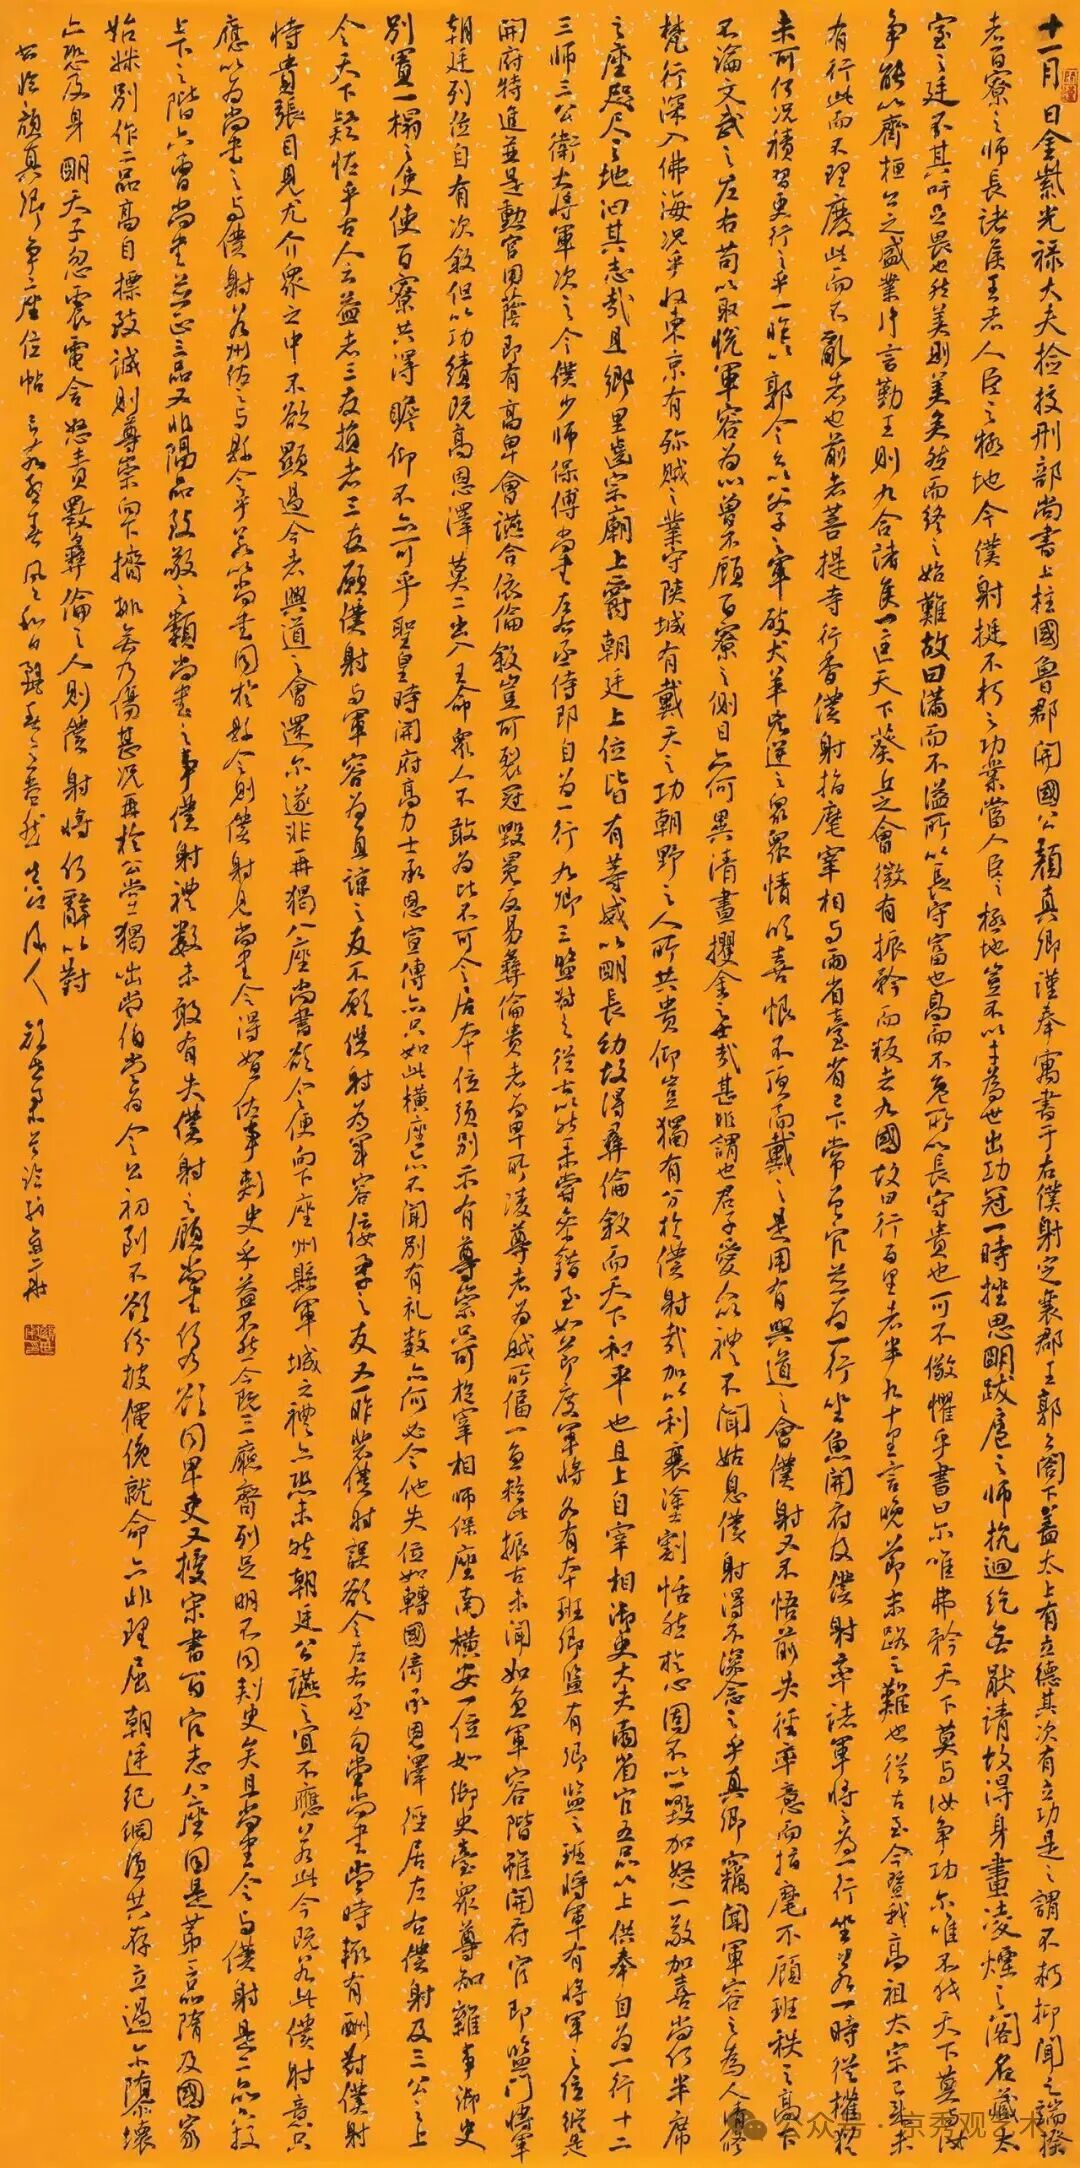 十一月日金紫光禄大夫檢校刑部尚書上柱國魯郡開國公顏真卿謹奉寓書于右僕射定襄郡王郭公閤下蓋太上有立德其次有立功是之謂不朽抑聞之端揆
者百寮之師長諸侯王者人臣之極地今僕射挺不朽之功業當人臣之極地豈不以才為世出功冠一時挫思明跋扈之師抗迴紇無厭請故得身畫凌煙之閣名藏太
室之廷吁足畏也然美則美矣然而終之始難故曰滿而不溢所以長守富也高而不危所以長守貴也可不儆懼乎書曰爾唯弗矜天下莫与汝爭功爾唯不伐天下莫与汝
爭能以齊桓公之盛業片言勤王則九合諸侯一匡天下葵丘之會微有振矜而叛者九國故曰行百里者半九十里言晚節末路之難也從古至今暨我高祖太宗已來未
有行此而不理廢此而不亂者也前者菩提寺行香僕射指麾宰相与兩省臺省已下常參官並為一行坐魚開府及僕射率諸軍將為一行坐若一時從權猶
未可何況積習更行之乎一昨以郭令公以父子之軍破犬羊凶逆之眾眾情欣喜恨不頂而戴之是用有興道之會僕射又不悟前失徑率意而指麾不顧班秩之高下
不論文武之左右苟以取悅軍容為心曾不顧百寮之側目亦何異清晝攫金之士哉甚非謂也君子愛人以禮不聞姑息僕射得不深念之乎真卿竊聞軍容之為人清修
梵行深入佛海況乎收東京有殄賊之業守陝城有戴天之功朝野之人所共貴仰豈獨有分於僕射哉加以利衰塗割恬然於心固不以一毀加怒一敬加喜尚何半席
之座咫尺之地汩其志哉且鄉里齒宗廟上爵朝廷上位皆有等威以明長幼故得彝倫敘而天下和平也且上自宰相御史大夫兩省官五品以上供奉自為一行十二
三師三公衛大將軍次之今僕少師保傅尚書左右丞侍郎自為一行九卿三監對之從古以然未嘗參錯至如節度軍將各有本班卿監有卿監之班將軍有將軍之位縱是
開府特進並是勳官用蔭即有高卑會讌合依倫敘豈可裂冠毀冕反易彝倫貴者為卑所凌尊者為賊所偪一至於此振古未聞如魚軍容階雖開府官即監門將軍
朝廷列位自有次敘但以功績既高恩澤莫二出入王命眾人不敢為比不可令居本位須別示有尊崇只可於宰相師保座南橫安一位如御史臺眾尊知雜事御史
別置一榻之使使百寮共得瞻仰不亦可乎聖皇時開府高力士承恩宣傳亦只如此橫座亦不聞別有礼数亦何必令他失位如輔國倚承恩澤徑居左右僕射及三公之上
令天下疑怪乎古人云益者三友損者三友願僕射与軍容為直諒之友不願僕射為軍容佞柔之友又一昨裴僕射誤欲令左右丞勾當尚書當時輒有酬對僕射
恃貴張目見尤介眾之中不欲顯過今者興道之會還爾遂非再猲八座尚書欲令便向下座州縣軍城之禮亦恐未然朝廷公讌之宜不應若此今既若此僕射意只
應以為尚書之与僕射若州佐之与縣令乎若以尚書同於縣令則僕射見尚書令得如佐事刺史乎益不然今既三廳齊列足明不同刺史矣且尚書令与僕射是二品只校
上下之階六曹尚書並正三品又非隔品致敬之類尚書之事僕射禮數未敢有失僕射之顧尚書何乃欲同卑吏又據宋書百官志八座同是第三品隋及國家
始升別作二品高自標致誠則尊崇向下擠排無乃傷甚況再於公堂猲咄常伯當為令公初到不欲紛披僶俛就命亦非理屈朝廷紀綱須共存立過爾隳壞
亦恐及身明天子忽震電含怒責斁彝倫之人則僕射將何辭以對
臨顏真卿争座位帖 風和日麗
公众号·京秀观艺术